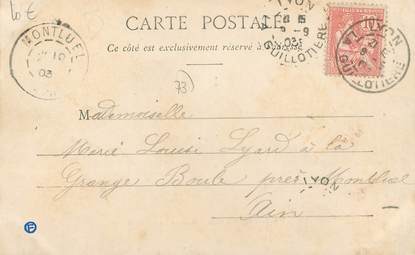 10€
CARTE POSTALE
Ce côté est exclusivement réservé à
MONTLUEL
03
LYON
LA GUILLOTIERE
8-9
03
LYON
LA GUILLOTIERE
10
73
Mademoiselle
Louise Lyard à la
Grange Boule près Montluel
Ain
LYON